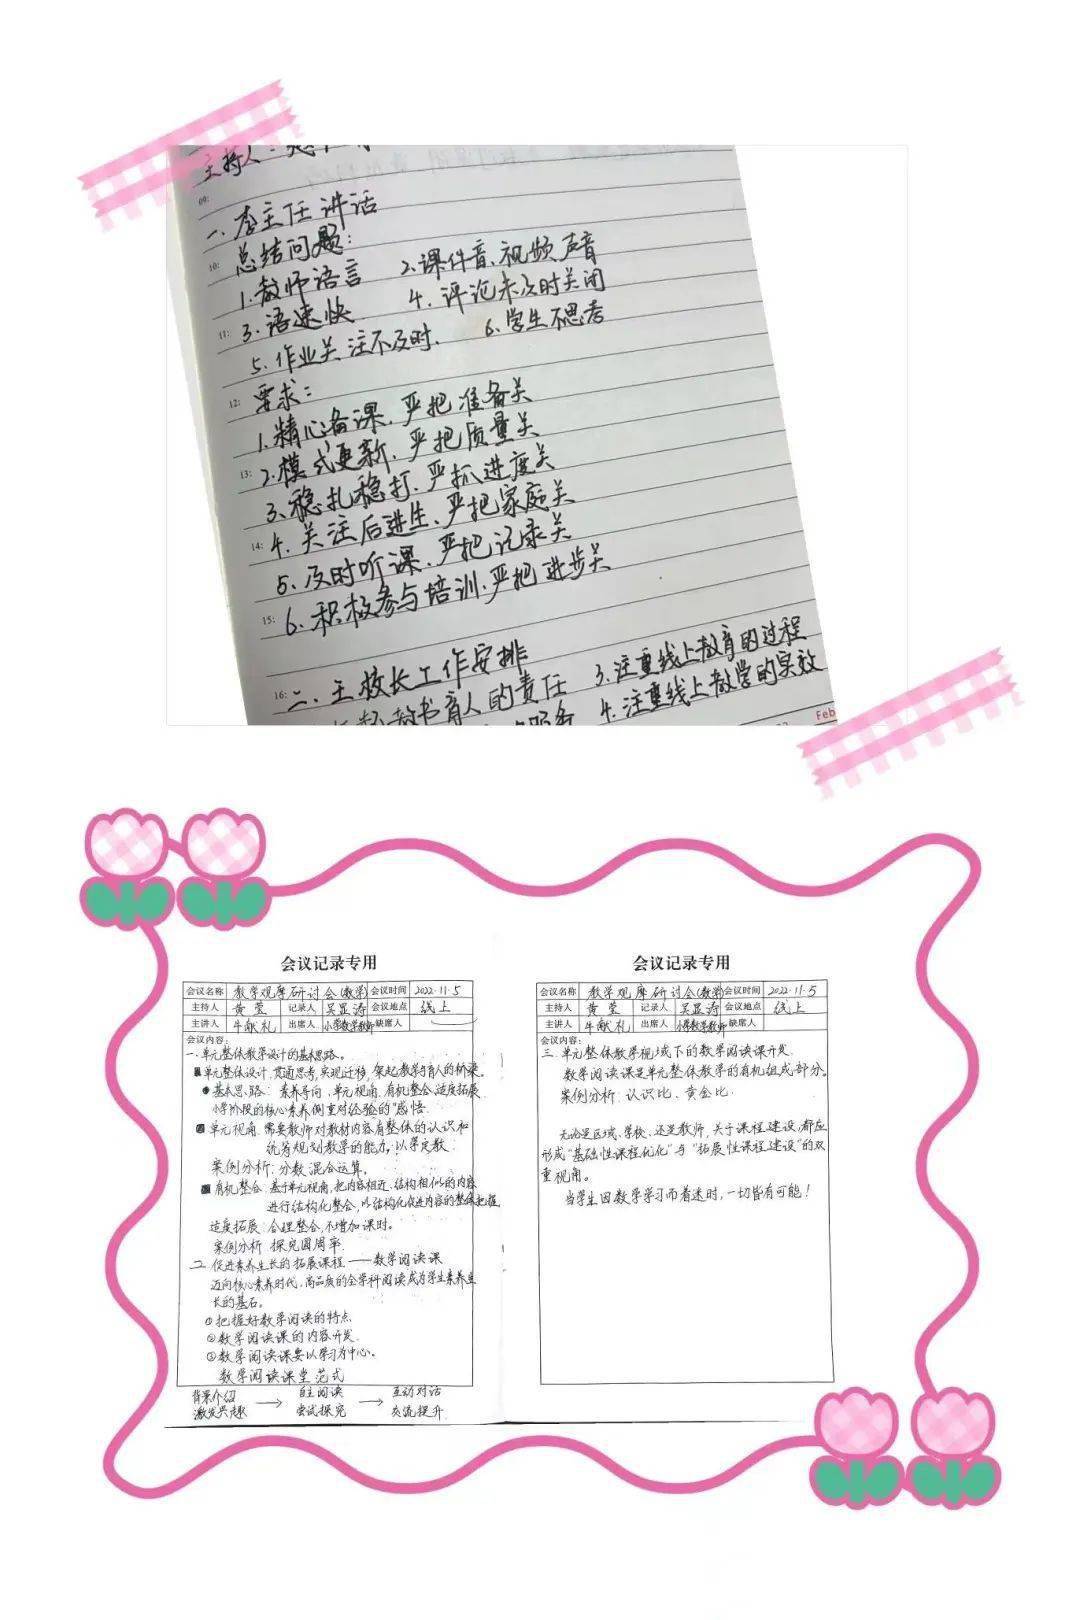 主持人：
09:
一、李主任讲话
10: 总结问题：
1.教师语言 2.课件音、视频声音
11: 3.语速快 4.评论未及时关闭
5.作业关注不及时. 6.学生不思考
12: 要求：
1.精心备课，严把准备关
13: 2.模式更新，严把质量关
3、稳扎稳打，严抓进度关
14: 4.关注后进生，严把家庭关
5、及时听课，严把记录关
15: 6.积极参与培训，严把进步关
16: 二、王校长工作安排
教书育人的责任 3.注重线上教育的过程
4.注重线上教学的实效
Feb
会议记录专用
会议名称 教学观摩研讨会(数学) 会议时间 2022.11.5
主持人 黄莹 记录人 吴显涛 会议地点 线上
主讲人 牛献礼 出席人 小学数学教师 缺席人
会议内容：
一.单元整体教学设计的基本思路。
单元整体设计,贯通思考,实现迁移,架起教学育人的桥梁。
基本思路：素养导向,单元视角,有机整合,适度拓展
小学阶段的核心素养侧重对经验的"感悟.
单元视角.需要教师对教材内容有整体的认识和
统筹规划教学的能力,以学定教.
案例分析:分数混合运算。
有机整合:基于单元视角,把内容相近、结构相似的内容
进行结构化整合,以结构化促进内容的整体把握
适度拓展:合理整合,不增加课时。
案例分析:探究圆周率.
二.促进素养生长的拓展课程——数学阅读课
迈向核心素养时代,高品质的全学科阅读成为学生素养生
长的基石。
①把握好数学阅读的特点
②数学阅读课的内容开发.
③数学阅读课要以学习为中心。
数学阅读课堂范式
背景介绍 → 自主阅读 → 互动对话
激发兴趣 尝试探究 交流提升
会议记录专用
会议名称 教学观摩研讨会(数学) 会议时间 2022.11.5
主持人 黄莹 记录人 吴显涛 会议地点 线上
主讲人 牛献礼 出席人 小学数学教师 缺席人
会议内容：
三.单元整体教学视域下的数学阅读课开发.
数学阅读课是单元整体教学的有机组成部分。
案例分析:认识比、黄金比.
无论是区域、学校、还是教师,关于课程建设,都应
形成"基础性课程优化"与"拓展性课程建设"的双
重视角。
当学生因数学学习而着迷时,一切皆有可能!